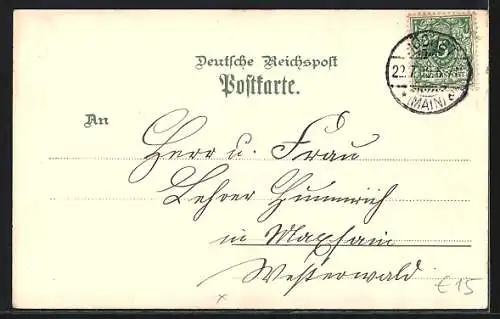 Deutsche Reichspost
Postkarte.
An
Herr u. Frau
Lehrer Hummrich
in Maxsain
Westerwald
22.7.
(MAIN)
€15